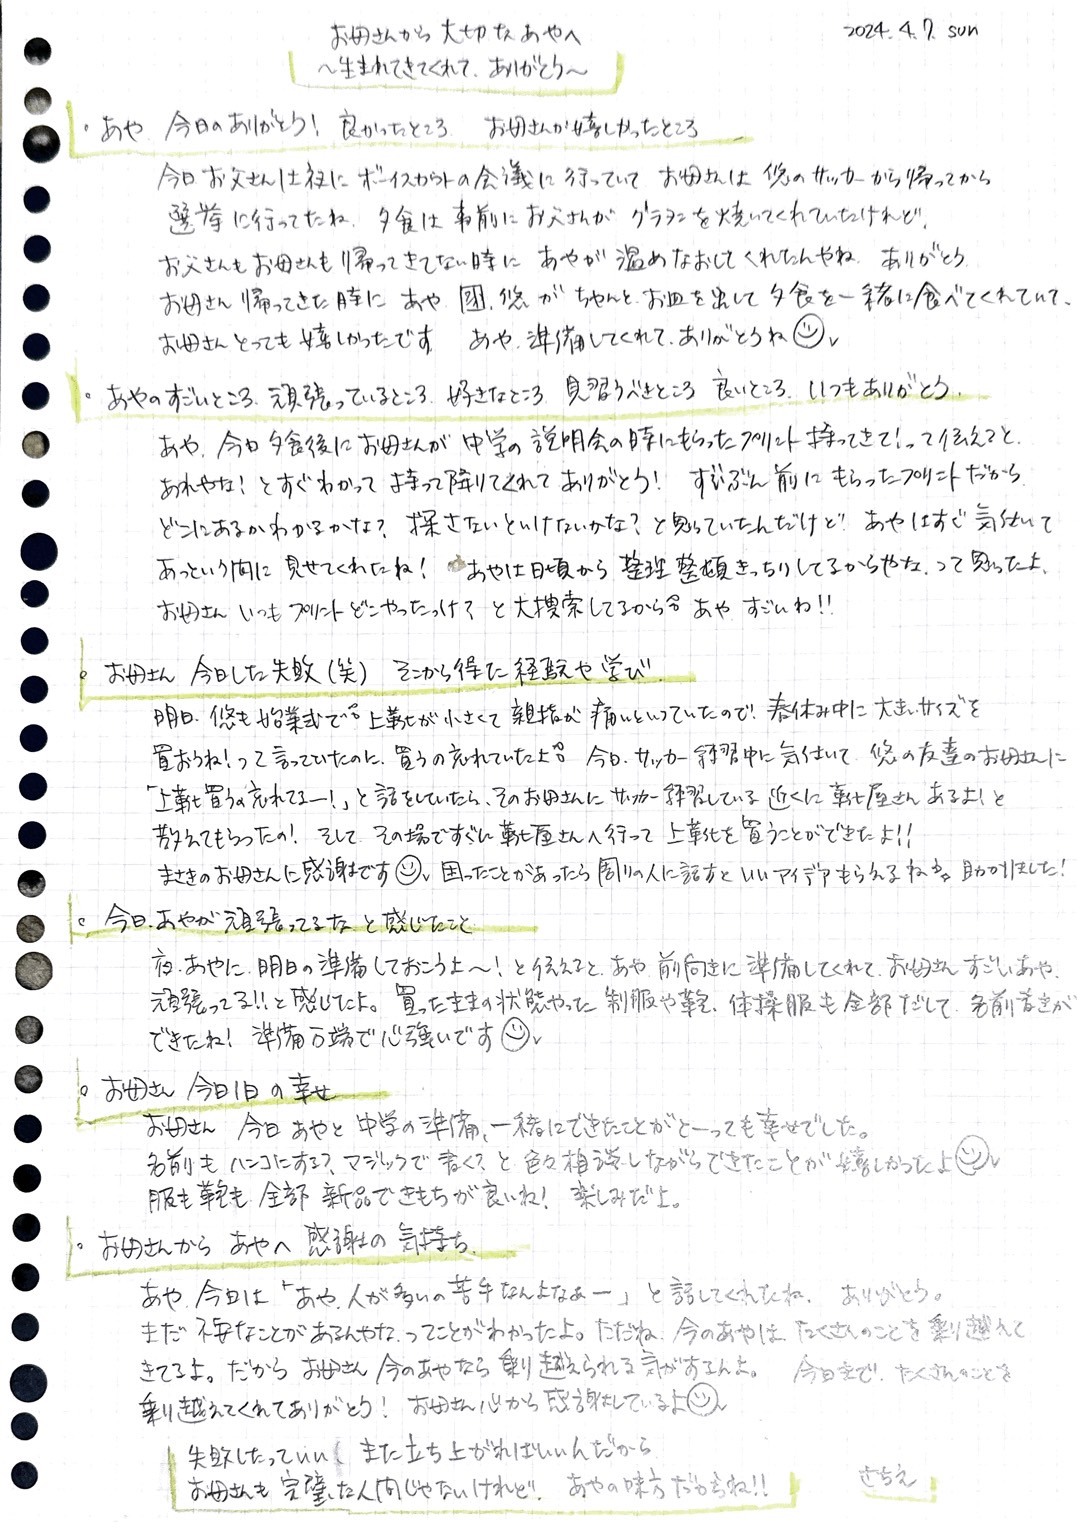 2024.4.7. sun
お母さんから 大切な あやへ
～生まれてきてくれて、ありがとう～
。あや 今日のありがとう! 良かったところ お母さんが嬉しかったところ
今日 お父さんは社に ボーイスカウトの会議に行っていて お母さんは 悠のサッカーから帰ってから
選挙に行ってたね。夕食は 事前にお父さんが グラタンを焼いてくれていたけれど、
お父さんも お母さんも 帰ってきてない時に あやが 温めなおしてくれたんやね ありがとう
お母さん 帰ってきた時に あや、團、悠 が ちゃんと お皿を出して 夕食を一緒に食べてくれていて、
お母さんとっても 嬉しかったです あや、準備してくれて、ありがとうね
。あやのすごいところ、頑張っているところ、好きなところ、見習うべきところ 良いところ、いつもありがとう。
あや、今日夕食後に お母さんが 中学の 説明会の時にもらったプリント 持ってきて!って伝えると、
あれやな! とすぐわかって 持って降りてくれて ありがとう! ずいぶん前に もらったプリントだから
どこにあるかわかるかな? 探さないといけないかな? と思っていたんだけど あやはすぐ 気付いて
あっという間に 見せてくれたね! あやは日頃から 整理整頓きっちりしてるからやな、って思ったよ、
お母さん いつも プリントどこやったっけ? と大捜索してるから あや すごいわ!!
。お母さん 今日した失敗(笑) そこから得た 経験や 学び
明日、悠も始業式で 上靴が小さくて 親指が 痛いといっていたので 春休み中に 大きいサイズを
買おうね!って 言っていたのに、買うの忘れていたよ 今日、サッカー 練習中に 気付いて 悠の友達のお母さんに
「上靴買うの忘れてるー!」と話をしていたら、そのお母さんに サッカー練習している 近くに 靴屋さん あるよ!と
教えてもらったの! そして その場ですぐに 靴屋さんへ行って 上靴を 買うことができたよ!!
まさきのお母さんに 感謝です 困ったことがあったら 周りの人に話すと いいアイデア もらえるね 助かりました!
。今日、あやが 頑張ってるな と感じたこと
夜、あやに 明日の準備しておこうよ～! と伝えると、あや 前向きに 準備してくれて、お母さん すごいあや、
頑張ってる!! と感じたよ。買ったままの状態やった 制服や鞄、体操服も 全部だして、名前書きが
できたね! 準備万端で 心強いです
。お母さん 今日1日の 幸せ
お母さん 今日 あやと 中学の準備、一緒にできたことが とーっても幸せでした。
名前も ハンコにする? マジックで 書く? と 色々相談しながらできたことが 嬉しかったよ
服も鞄も 全部 新品できもちが 良いね! 楽しみだよ。
。お母さんから あやへ 感謝の 気持ち
あや、今日は「あや、人が多いの苦手なんよなぁー」と話してくれたね。 ありがとう。
まだ 不安なことがあるんやな、ってことがわかったよ。ただね、今のあやは、たくさんのことを 乗り越えて
きてるよ。だから お母さん 今のあやなら 乗り越えられる気がするんよ。 今日まで、たくさんのことを
乗り越えてくれてありがとう! お母さん心から感謝しているよ
失敗したっていい また立ち上がればいいんだから
お母さんも 完璧な人間じゃないけれど、 あやの味方だからね!!
さちえ